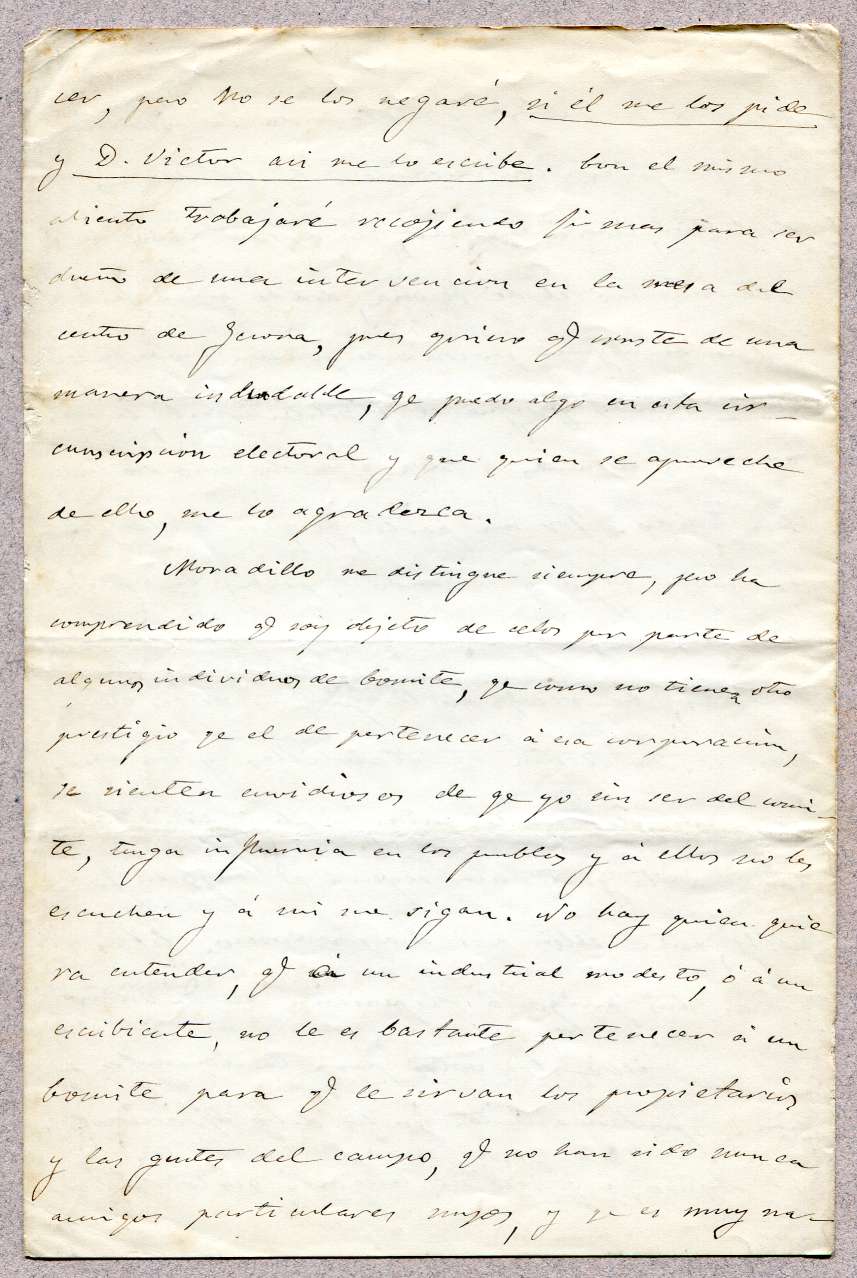 cer, pero no se los negaré, si él me los pide
y D. Victor asi me lo escribe. Con el mismo
aliento trabajaré recojiendo firmas para ser
dueño de una intervencion en la mesa del
centro de Gerona, pues quiero q conste de una
manera indudable, qe puedo algo en esta cir-
cunscripcion electoral y que quien se aproveche
de ello, me lo agradezca.
Moradillo me distingue siempre, pero ha
comprendido q soy objeto de celos por parte de
algunos individuos de Comite, qe como no tienen otro
prestigio qe el de pertenecer á esa corporacion,
se sienten envidiosos de qe yo sin ser del comi-
te, tenga influencia en los pueblos y á ellos no les
escuchen y á mi me sigan. No hay quien quie
ra entender, q á un industrial modesto, ó á un
escribiente, no le es bastante pertenecer á un
Comite para q le sirvan los propietarios
y las gentes del campo, q no han sido nunca
amigos particulares suyos, y qe es muy na-